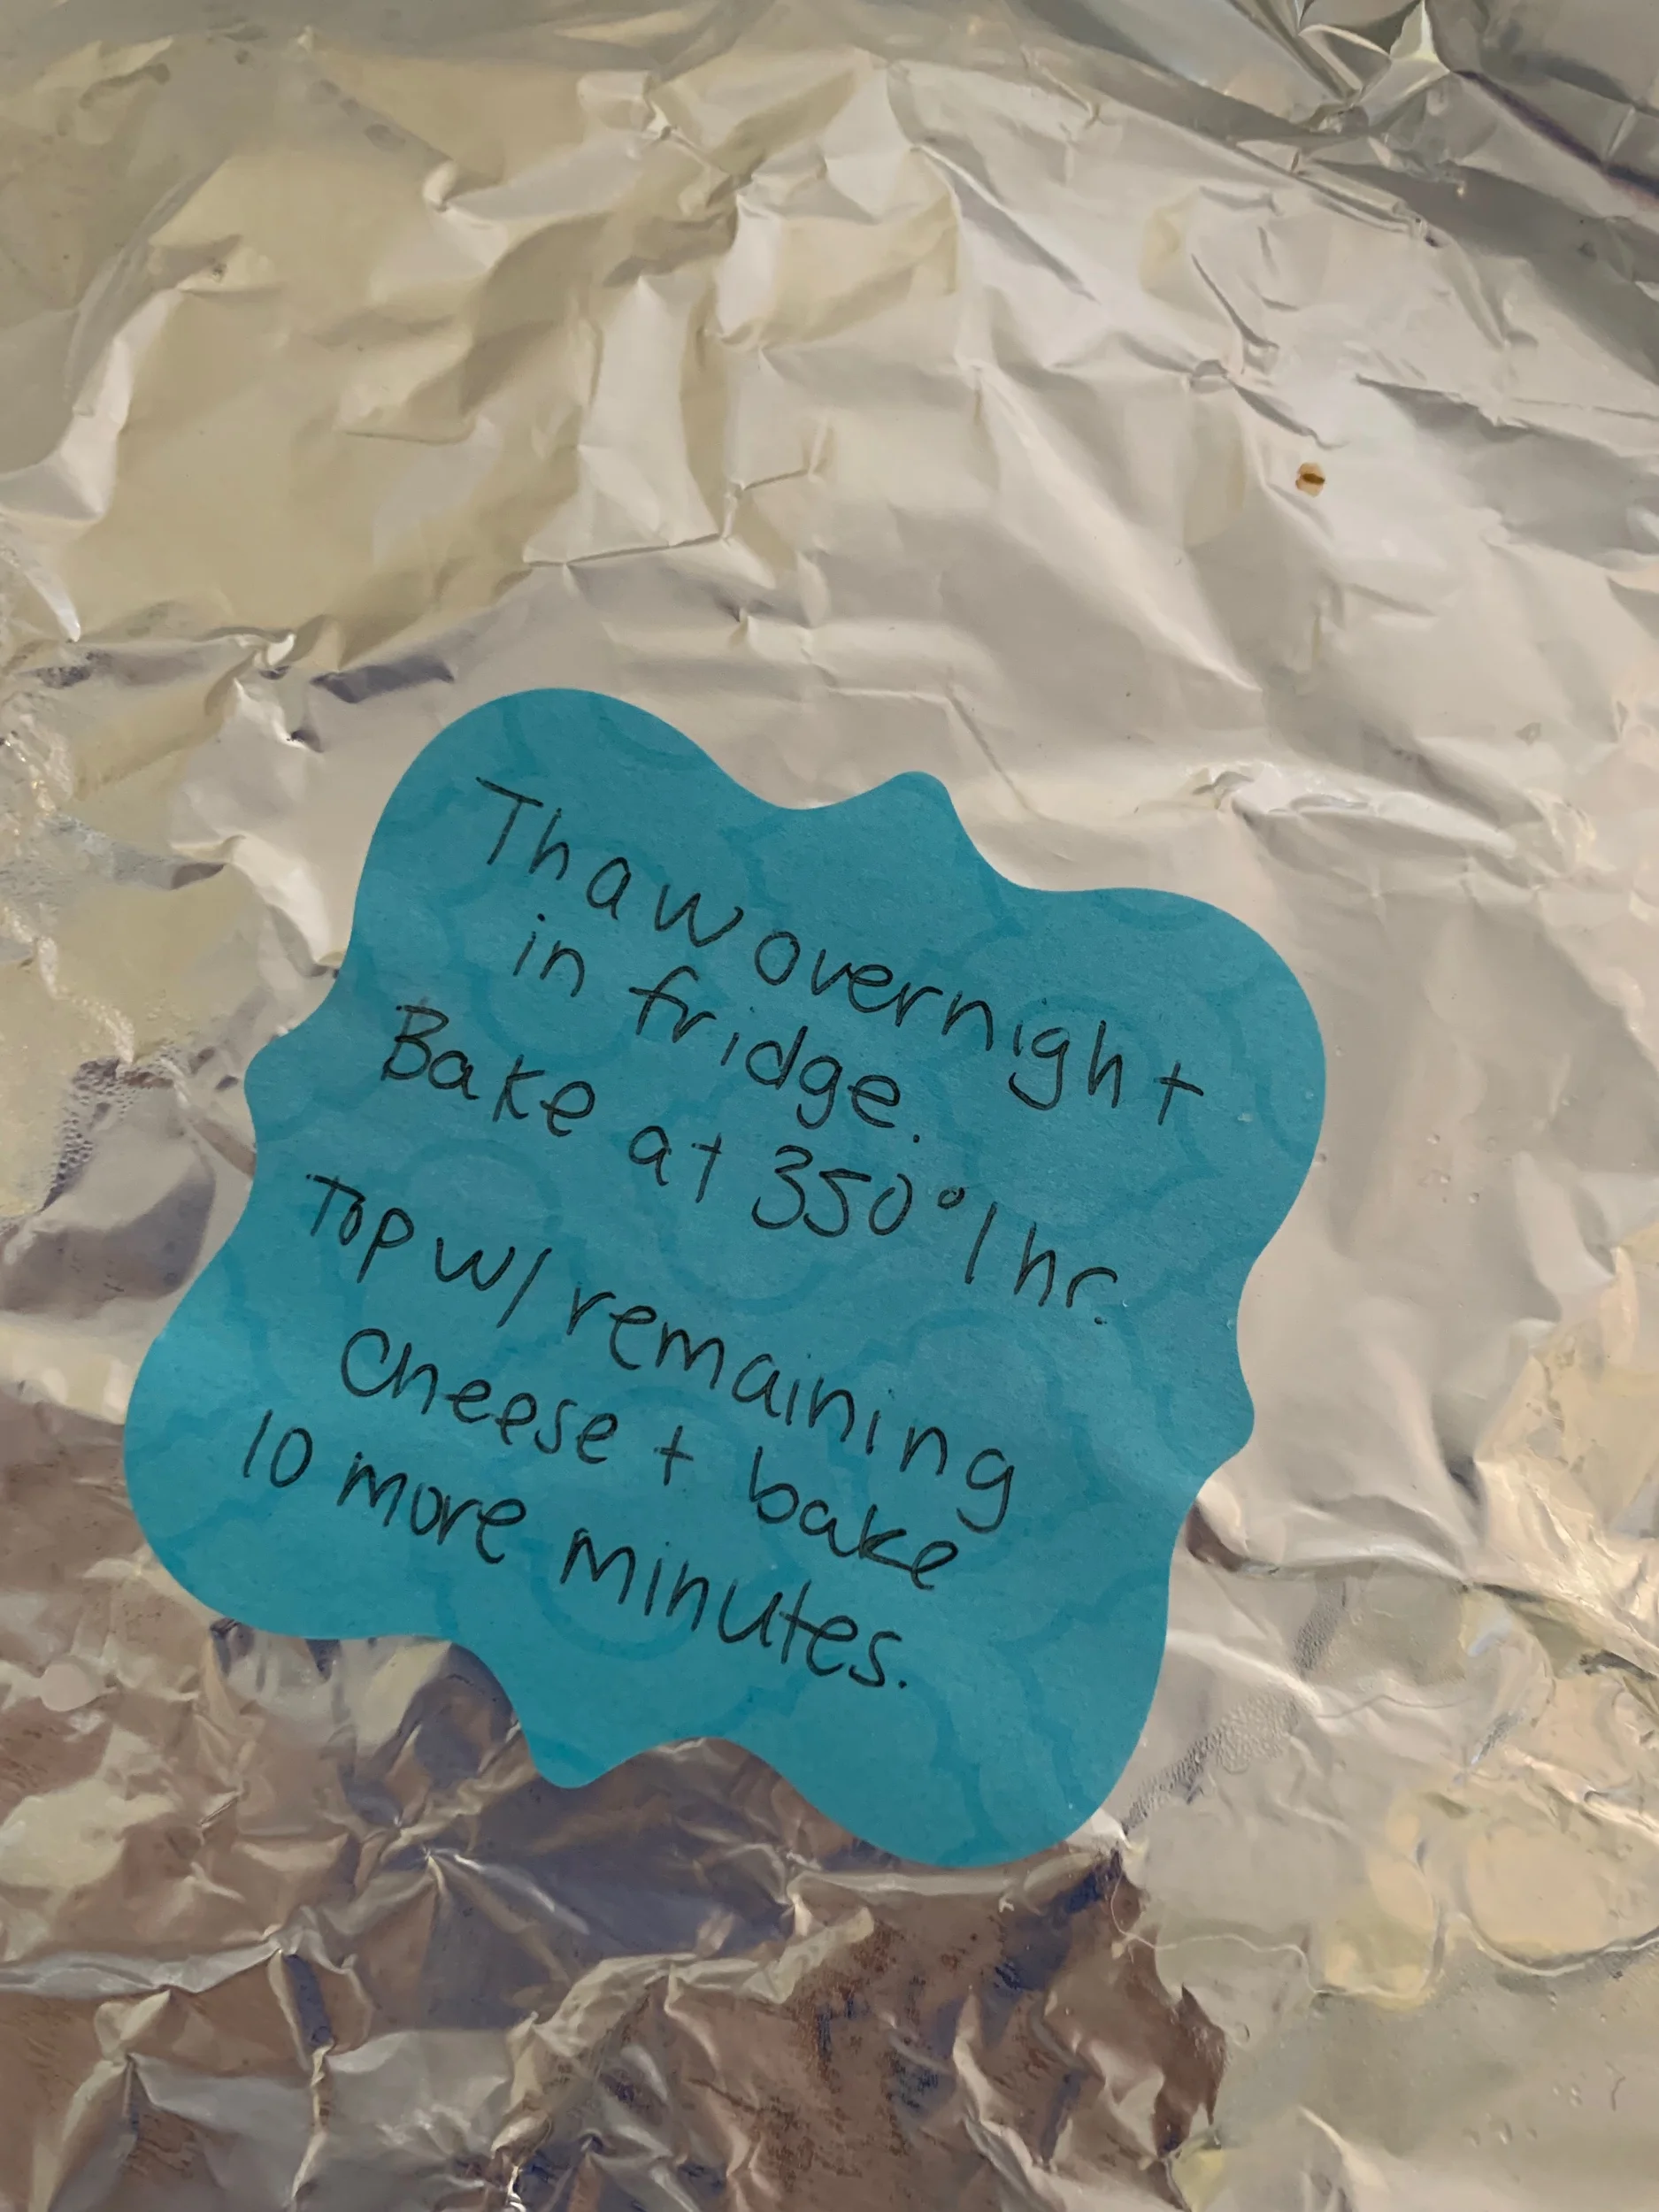 Thaw overnight
in fridge.
Bake at 350° 1 hr.
Top w/ remaining
cheese + bake
10 more minutes.